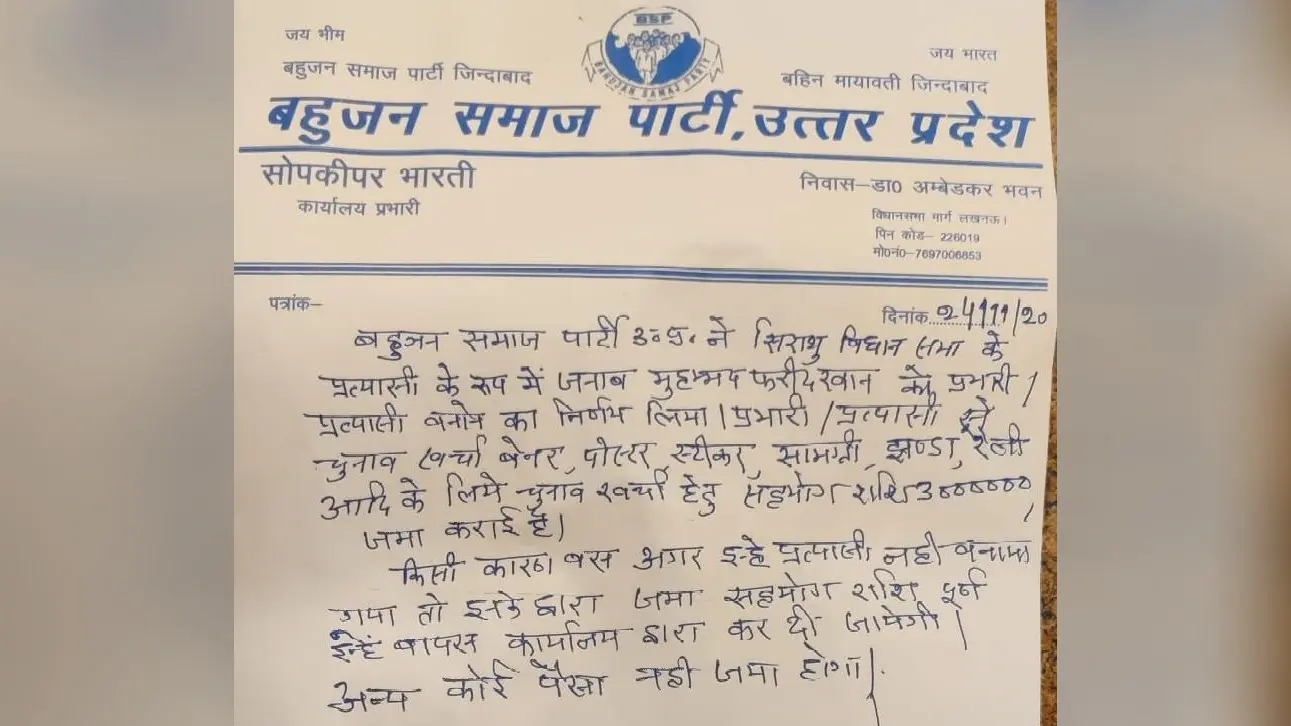 जय भीम
जय भारत
BSP
BAHUJAN SAMAJ PARTY
बहुजन समाज पार्टी जिन्दाबाद
बहिन मायावती जिन्दाबाद
बहुजन समाज पार्टी, उत्तर प्रदेश
सोपकीपर भारती
कार्यालय प्रभारी
निवास–डा0 अम्बेडकर भवन
विधानसभा मार्ग लखनऊ।
पिन कोड– 226019
मो0नं0–7697006853
पत्रांक–
दिनांक 24/11/20
बहुजन समाज पार्टी उ॰प्र॰ ने सिराथु विधान सभा के
प्रत्यासी के रूप में जनाब मुहम्मद फरीद खान को प्रभारी /
प्रत्यासी बनाने का निर्णय लिया। प्रभारी / प्रत्यासी ने
चुनाव खर्चा बेनर, पोस्टर, स्टीकर, सामग्री, झण्डा, रैली
आदि के लिये चुनाव खर्चा हेतु सहयोग राशि 3000000
जमा कराई है।
किसी कारण वस अगर इन्हे प्रत्यासी नही बनाया
गया तो इनके द्वारा जमा सहयोग राशि पूर्ण
इन्हें वापस कार्यालय द्वारा कर दी जायेगी।
अन्य कोई पैसा नही जमा होगा।